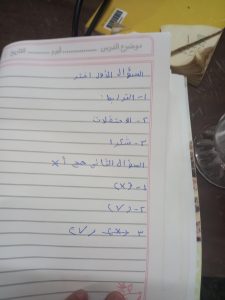 موضوع الدرس ........ اليوم ........ التاريخ
السؤال الأول اختر
١- القرابط:
٢- الاحتفلات
٣- شكرا
السؤال الثاني صح أ x
١- (x)
٢- (√)
٣ (√)